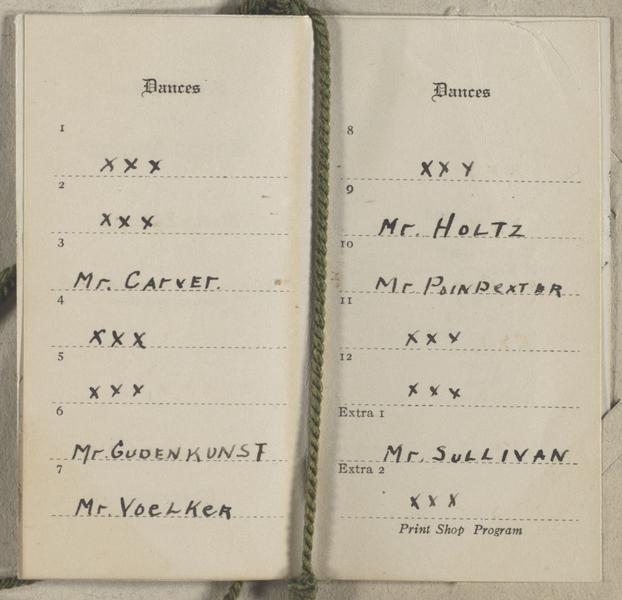 Dances
1
xxx
2
xxx
3
Mr. Carver.
4
xxx
5
xxx
6
Mr. GUDENKUNST
7
Mr. VOELKER
Dances
8
xxx
9
Mr. HOLTZ
10
Mr POINDEXTER
11
xxx
12
xxx
Extra 1
Mr. SULLIVAN
Extra 2
xxx
Print Shop Program